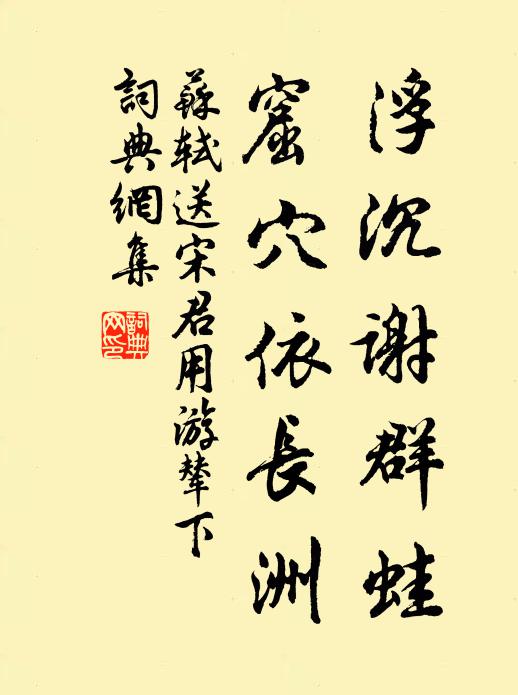 浮沉謝群蛙
窟穴依長洲
蘇軾送宋君用游輦下
詞典網集
詞典网印